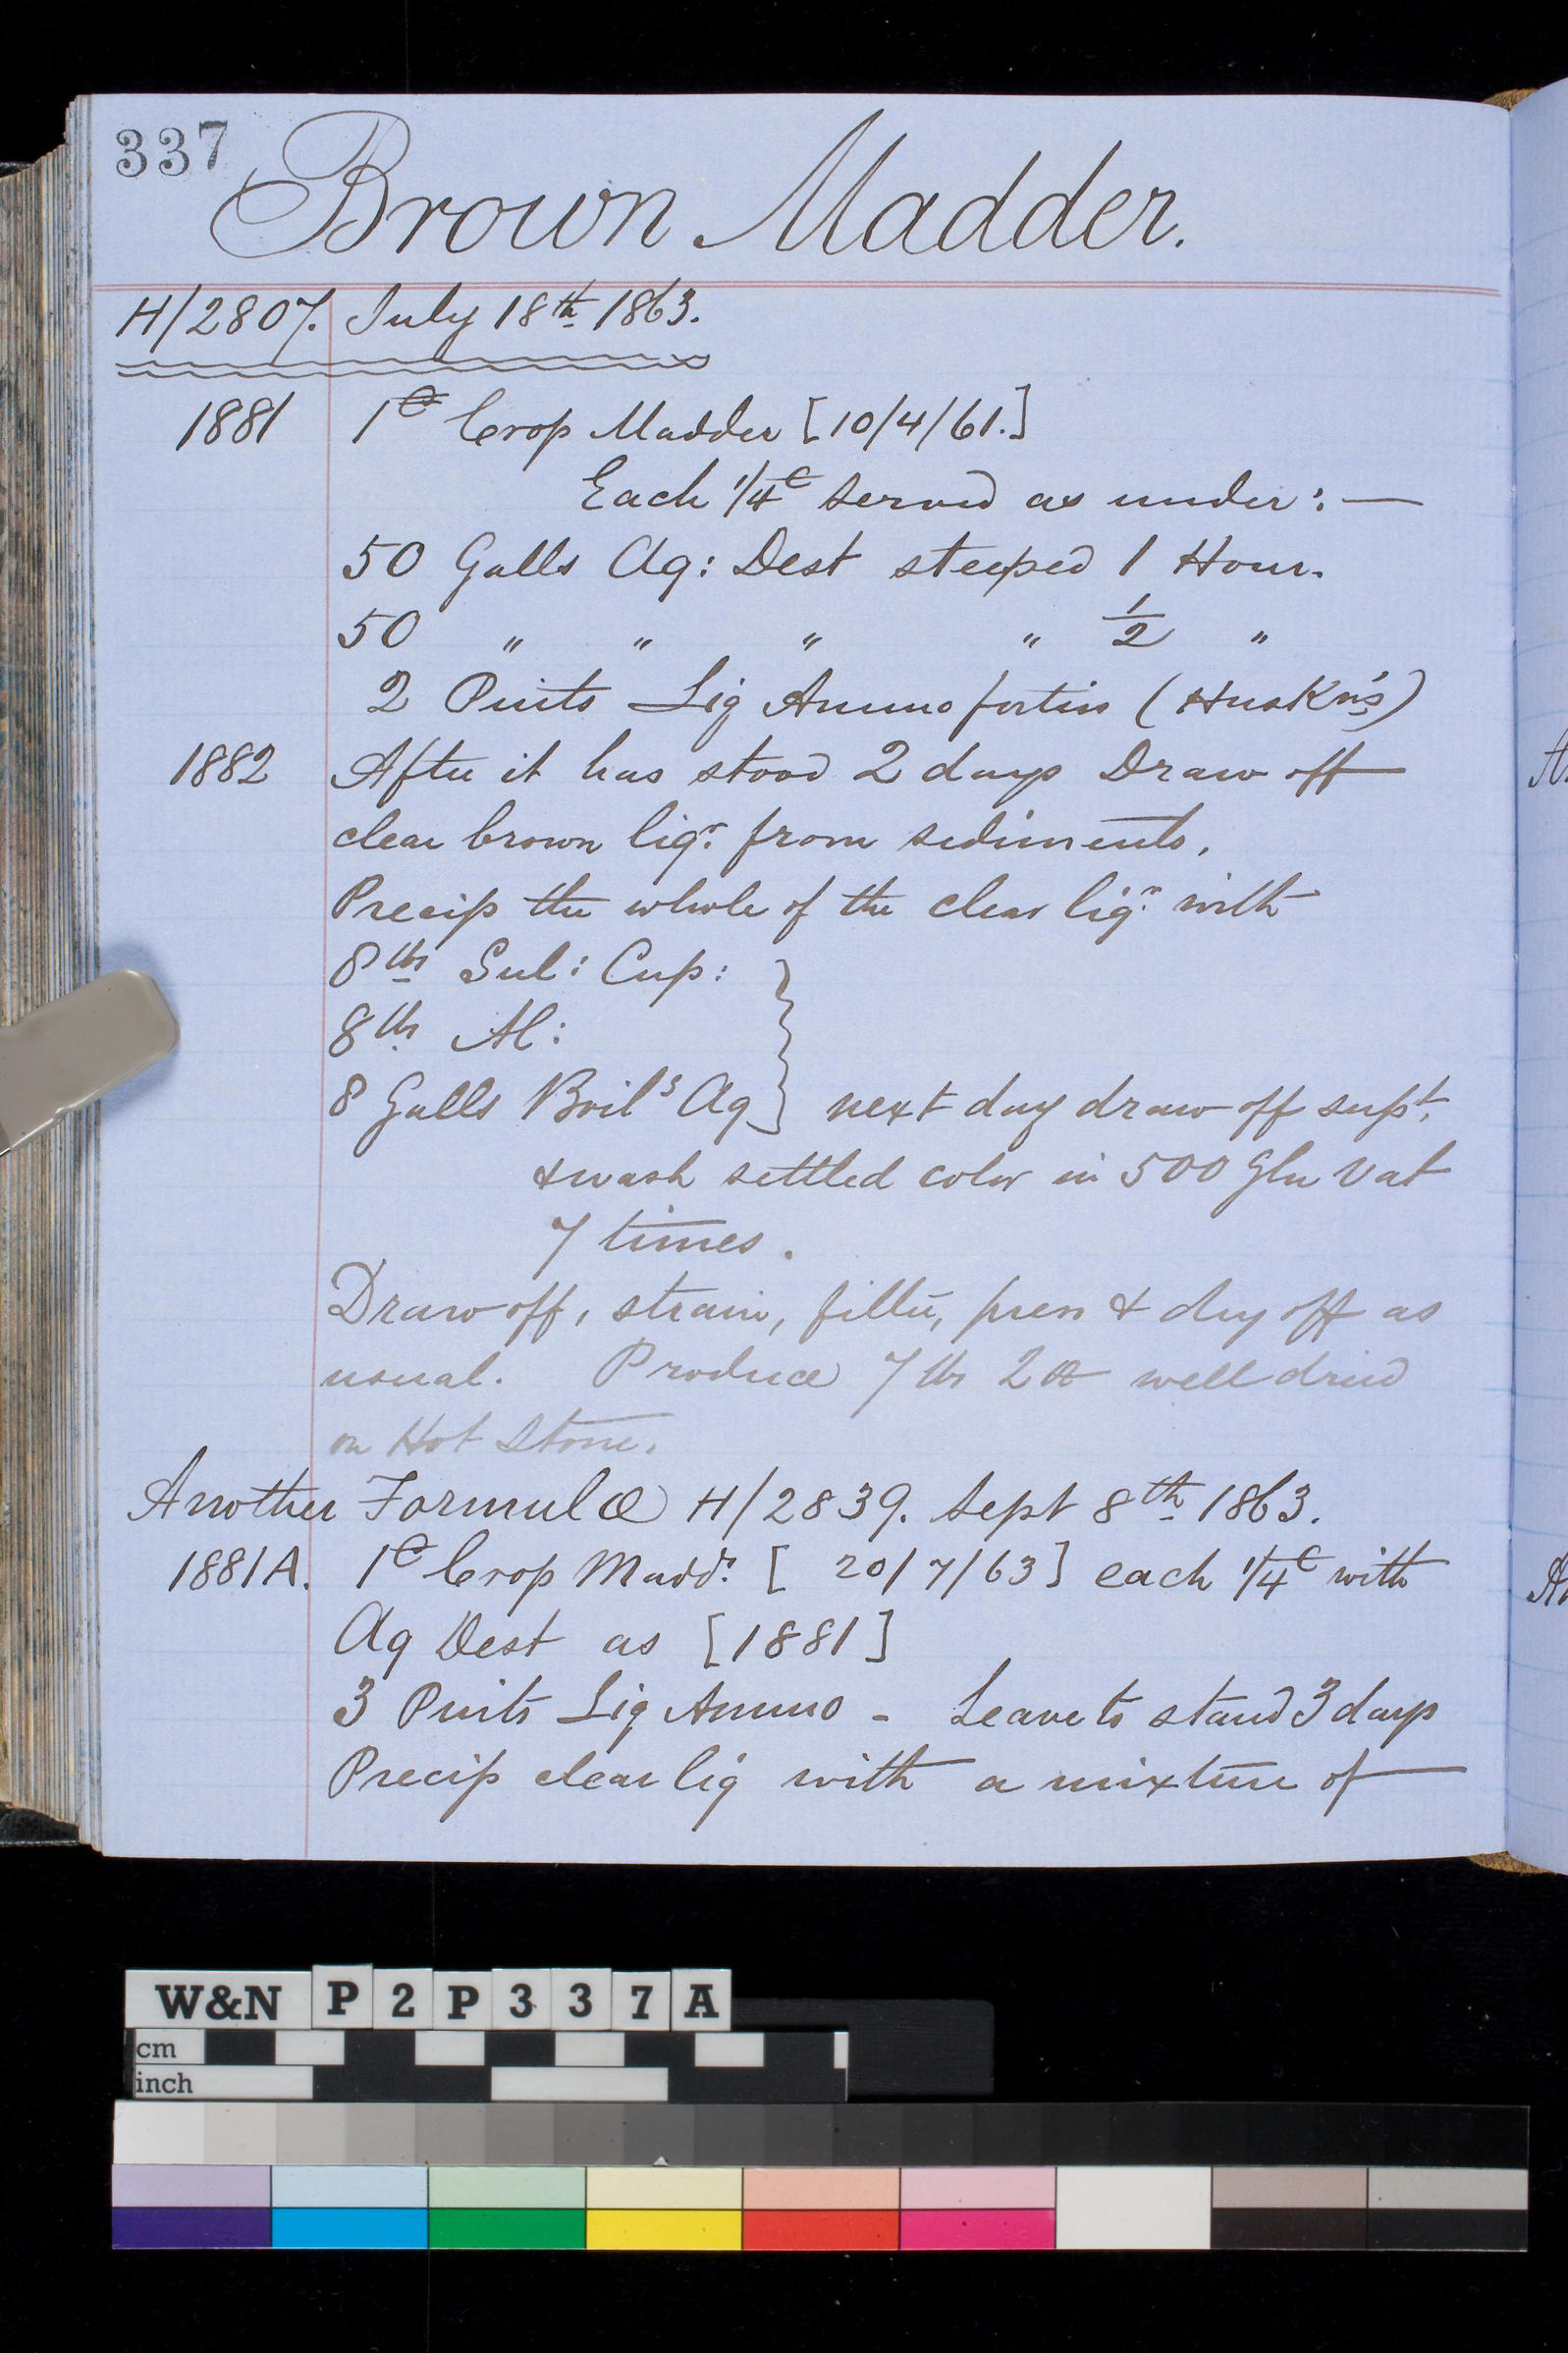 337
Brown Madder.
H/2807. July 18th 1863.
1881 1C Crop Madder [10/4/61.]
Each 1/4C served as under:—
50 Galls Aq: Dest steeped 1 Hour.
50 " " " " 1/2 "
2 Pints Liq Ammo fortis (Huskn's)
1882 After it has stood 2 days Draw off
clear brown liqr. from sediments.
Precip the whole of the clear liqr. with
8 lbs Sul: Cup:
8 lbs Al:
8 Galls Boilg Aq } next day draw off supt.
& wash settled color in 500 Gln Vat
7 times.
Draw off, strain, filter, press & dry off as
usual. Produce 7 lbs 2 well dried
on Hot Stone.
Another Formula H/2839. Sept 8th 1863.
1881A. 1C Crop Maddr. [ 20/7/63] each 1/4C with
Aq Dest as [1881]
3 Pints Liq Ammo - Leave to stand 3 days
Precip clear liq with a mixture of
W&N P2P337A
cm
inch